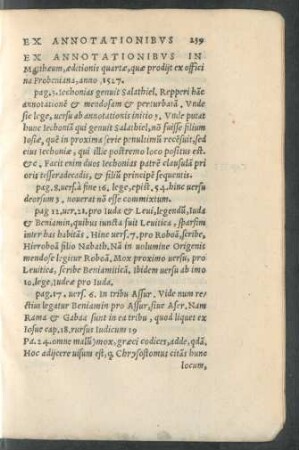 EX ANNOTATIONIBVS 259
EX ANNOTATIONIBVS IN
Matthæum, æditionis quartæ, quæ prodijt ex offici
na Frobeniana, anno .1527.
pag.5. Iechonias genuit Salathiel. Repperi hãc
annotationẽ & mendosam & perturbatã, Vnde
sic lege, uersu ab annotationis initio 3, Vnde putat
hunc Iechoniã qui genuit Salathiel, nõ fuisse filium
Iosiæ, quẽ in proxima serie pntulimꝰ recēsuit, sed
eius Iechoniæ, qui illic postremo loco positus est.
&c, Facit enim dues Iechonias patrē clausulã pri
oris tesseradecadis, & filiũ principẽ sequentis.
pag.8, uers.à fine 16, lege, epist, 54. hinc uersu
deorsum 3, nouerat nõ esse commixtum.
pag 12, uer.21, pro Iuda & Leui, legendũ, Iuda
& Beniamin, quibus iuncta fuit Leuitica, sparsim
inter has habitãs, Hinc uers.7. pro Roboã, scribe,
Hieroboã filio Nabath. Nã in uolumine Origenis
mendose legitur Roboã, Mox proximo uersu, pro
Leuitica, scribe Beniamitica, Ibidem uersu ab imo
10, lege, Iudeæ pro Iuda.
pag.17. uers. 6. In tribu Assur. Vide num re
ctius legatur Beniamin pro Assur, siue Aser, Nam
Rama & Gabaa sunt in ea tribu, quod liquet ex
Iosue cap.18. rursus Iudicum 19
Pa.24. omne malũ) mox, græci codices, adde, qdã,
Hoc adijcere uisum est, q Chrysostomus citãs hunc
locum,